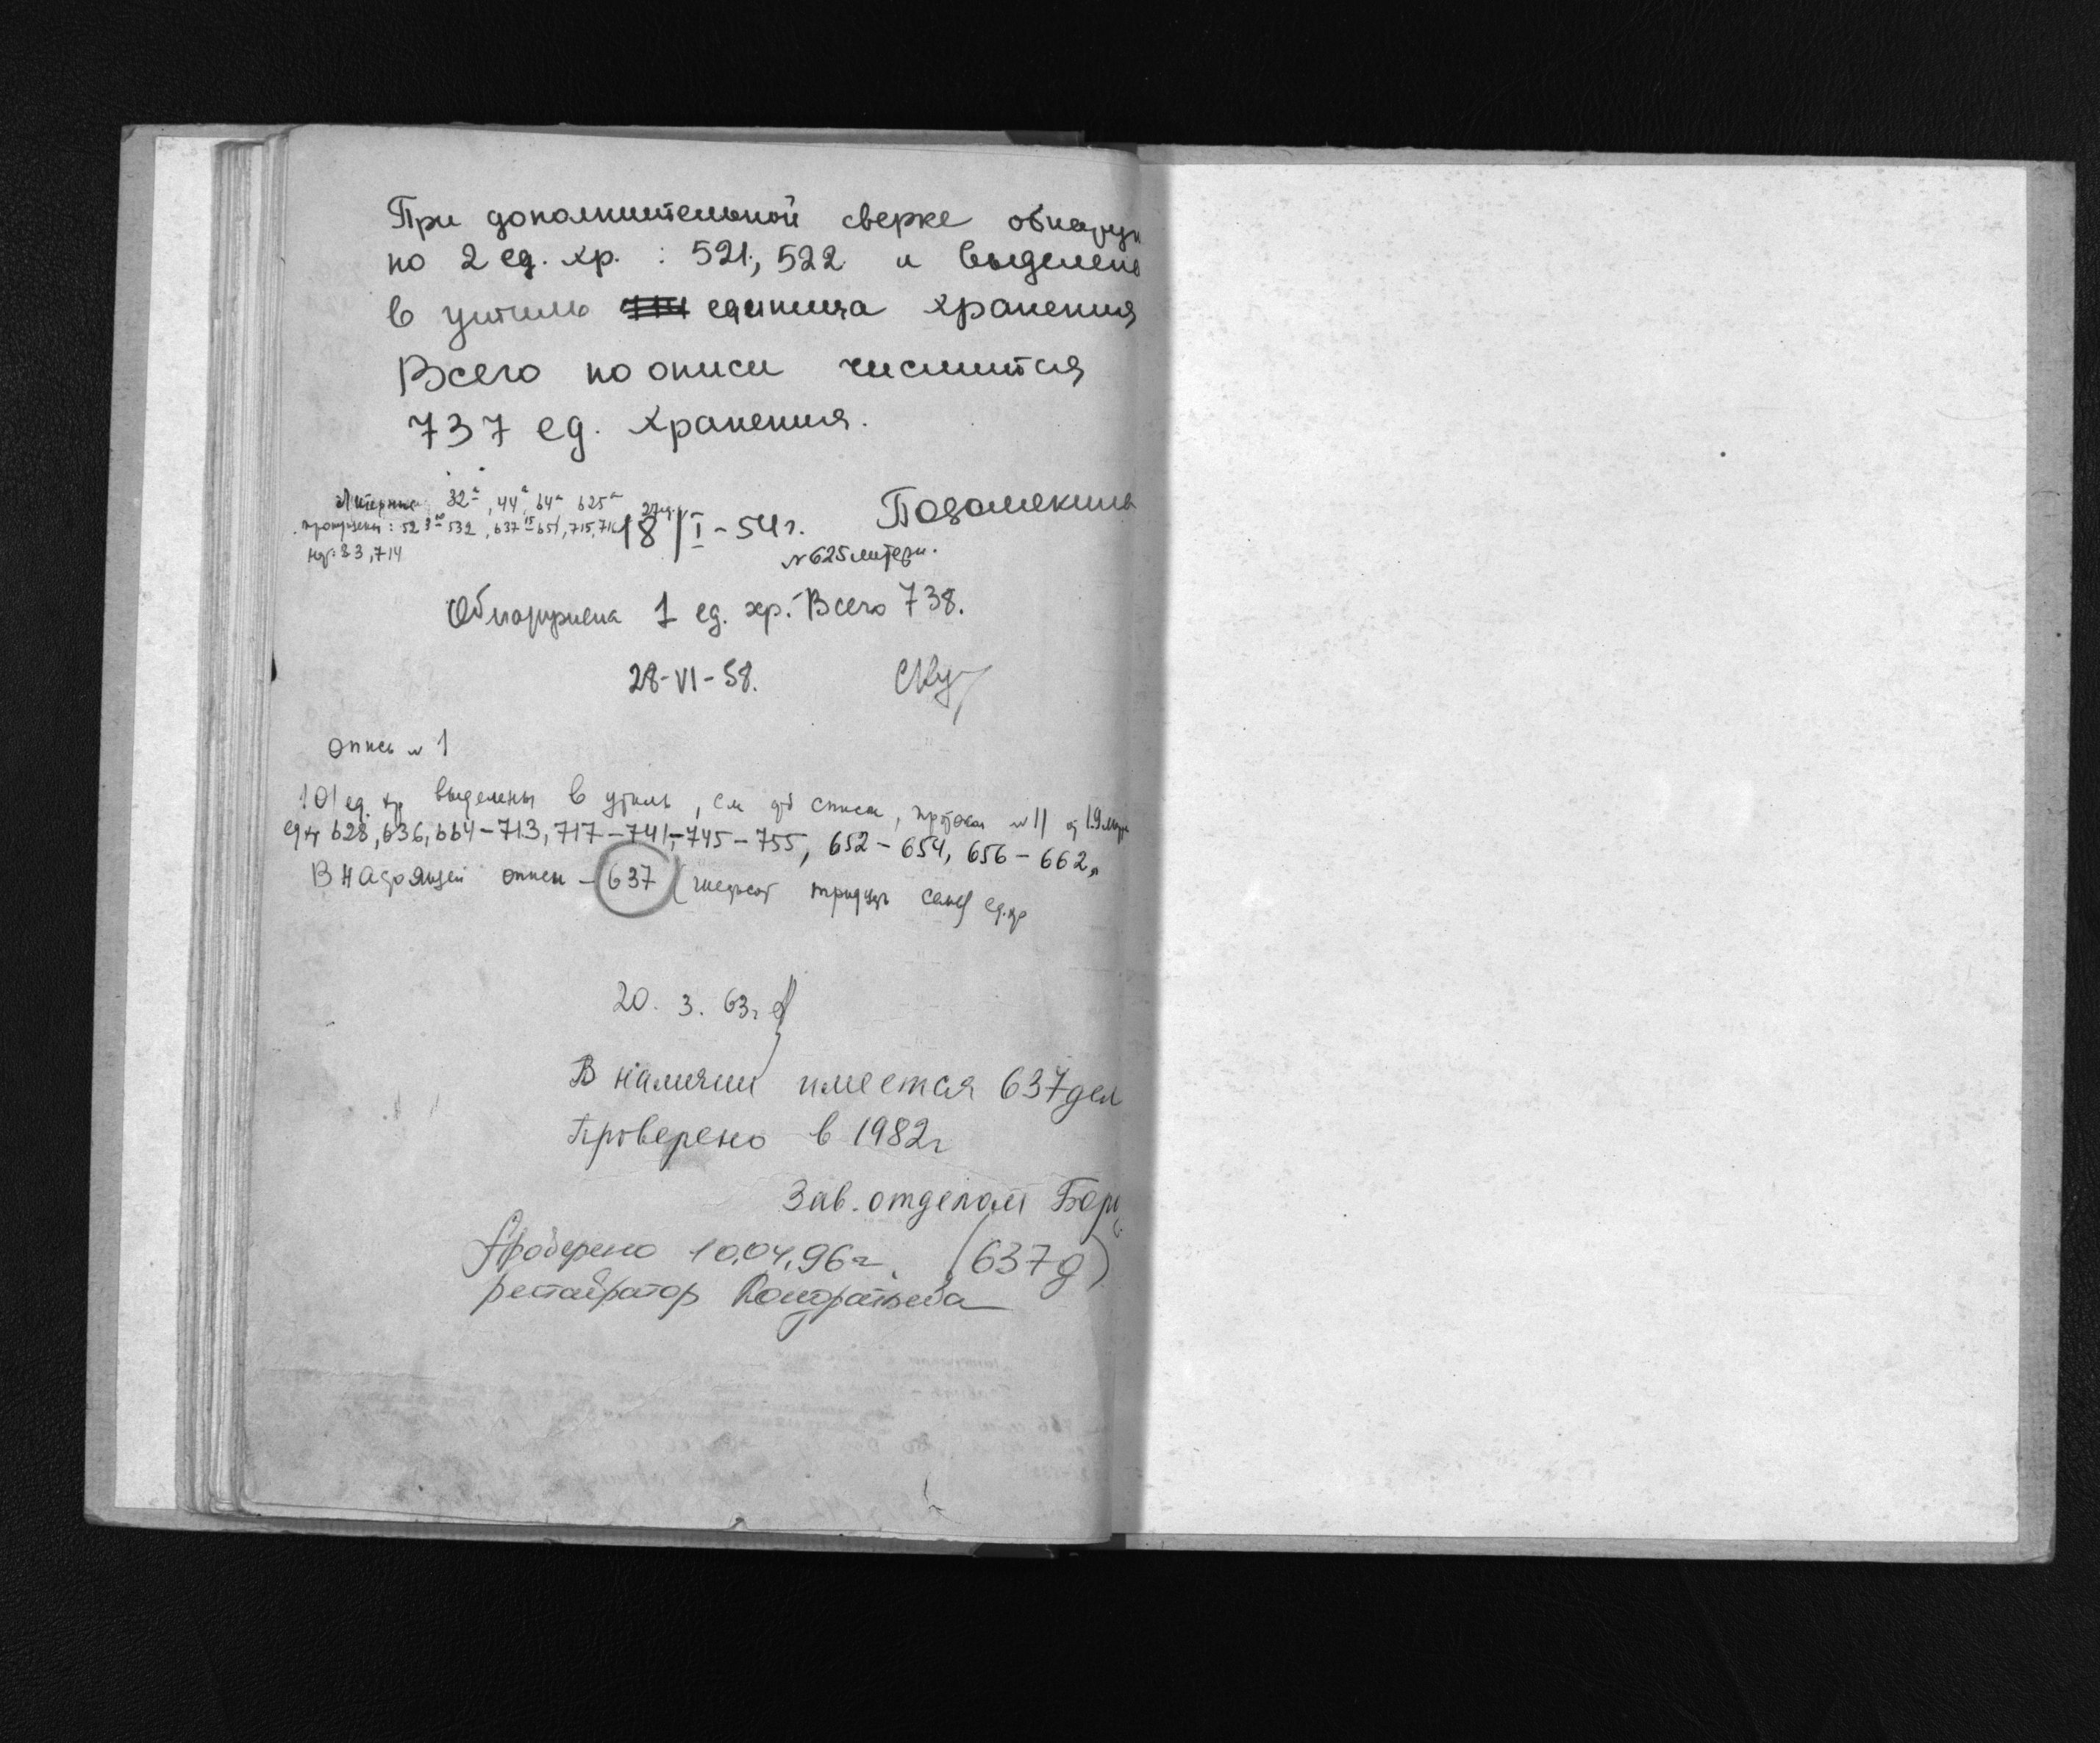 При дополнительной сверке обнаруж
но 2 ед. хр. : 521, 522 и выделено
в утиль единица хранения
Всего по описи числится
737 ед. хранения.
Литерные 32а, 44а, 64а 625а
пропущены: 523-532, 637-651, 715, 716
83, 714
18/I-54г.
№625 литерн.
Обнаружена 1 ед. хр. Всего 738.
28-VI-58.
Опись № 1
101 ед. хр выделены в утиль, см списки, протокол № 11 от 19 мар
ед хр 628, 636, 664-713, 717-741, 745-755, 652-654, 656-662,
В настоящей описи - 637 (шестьсот тридцать семь) ед. хр
20. 3. 63г
В наличии имеется 637 дел
Проверено в 1982г
Зав. отделом
Проверено 10.04.96г. (637 д)
реставратор Кондратьева